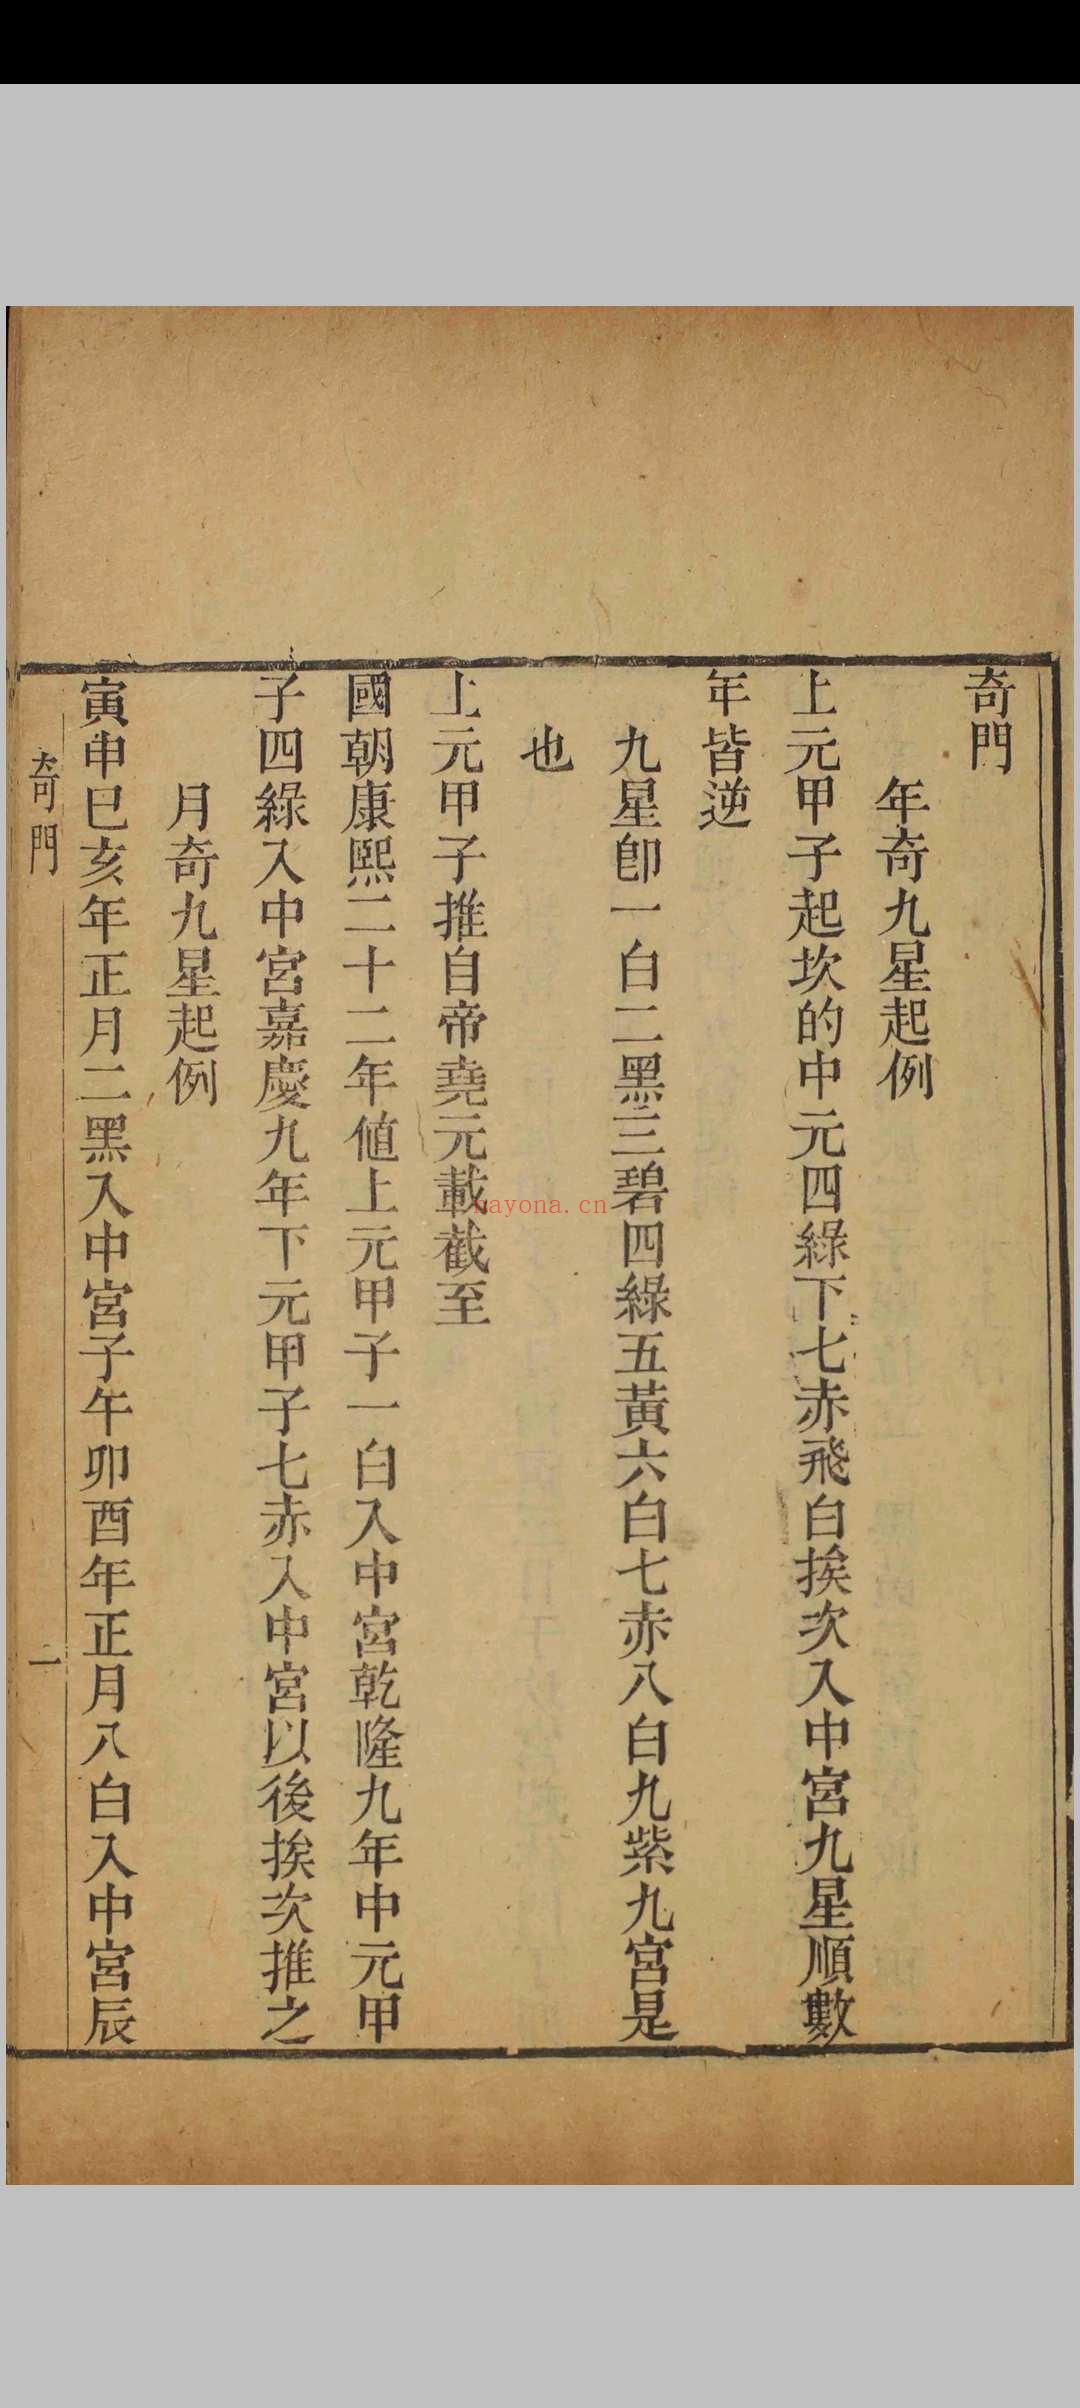 奇門
年奇九星起例
上元甲子起坎的中元四綠下七赤飛白挨次入中宮九星順數
年皆逆
九星卽一白二黑三碧四綠五黃六白七赤八白九紫九宮是
也
上元甲子推自帝堯元載截至
國朝康熙二十二年値上元甲子一白入中宮乾隆九年中元甲
子四綠入中宮嘉慶九年下元甲子七赤入中宮以後挨次推之
月奇九星起例
寅申巳亥年正月二黑入中宮子午卯酉年正月八白入中宮辰
奇門
一
nayona.cn